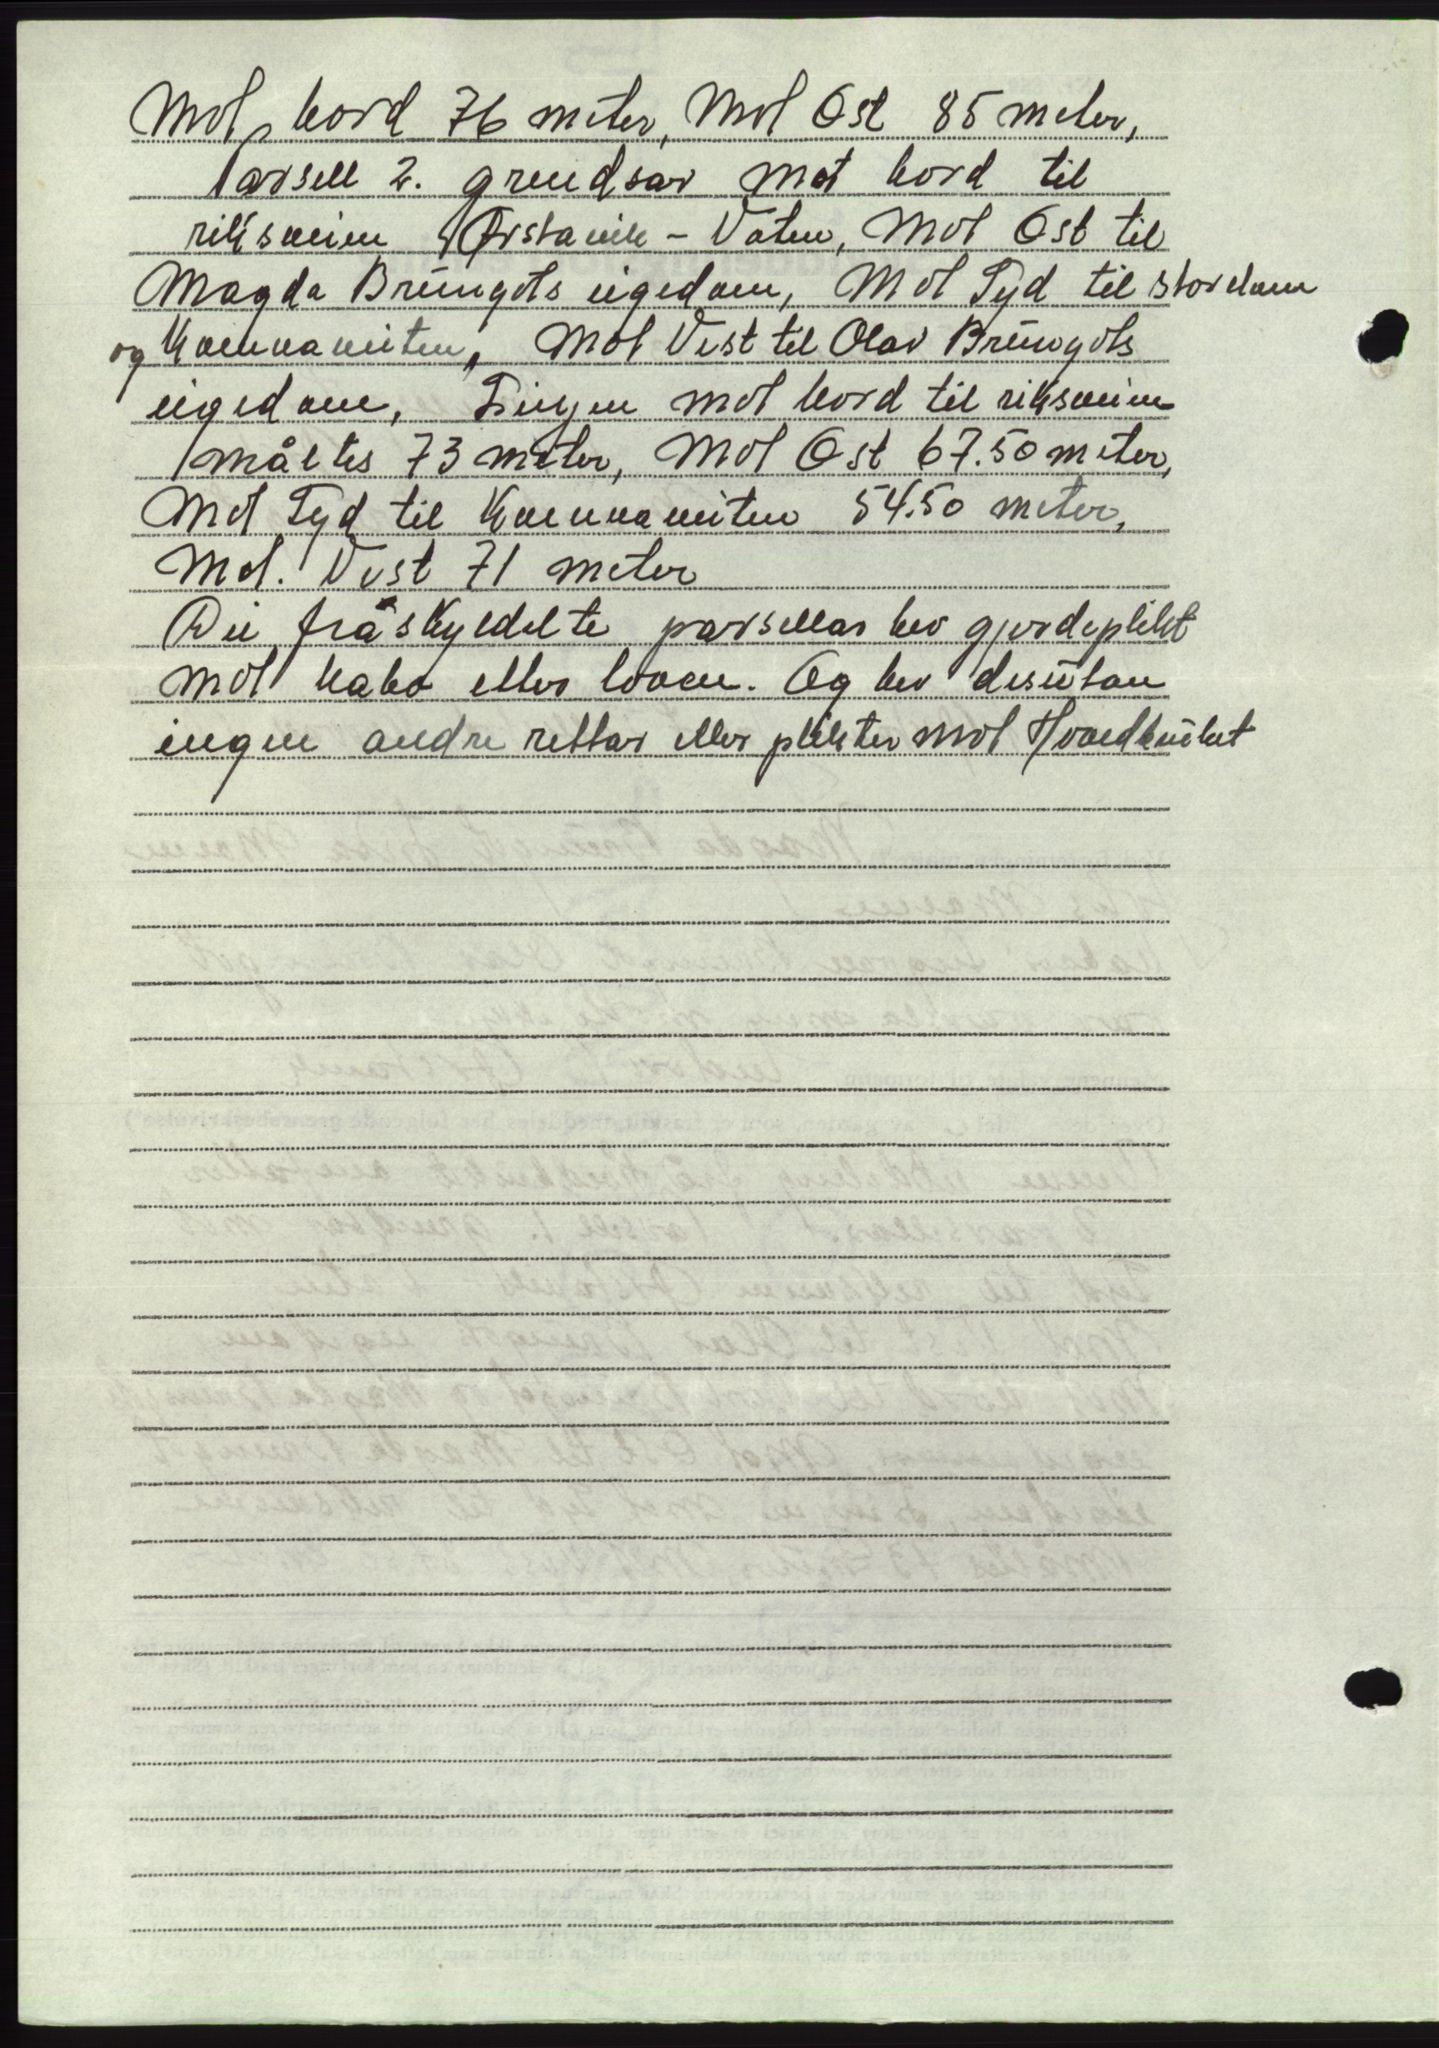 Mot Nord 76 meter, Mot Ost 85 meter,
Parsell 2. grendsar mot Nord til
riksveien Ørstavik - Vatne, Mot Ost til
Magda Brüngots eigedom, Mot Syd til stordam
og Kvennaveiten, Mot Vest til Olav Brüngots
eigedom, Linjen mot Nord til riksveien
måltes 73 meter, Mot Ost 67.50 meter,
Mot Syd til Kvennaveiten 54.50 meter,
Mot. Vest 71 meter
Dei fråskyldelte parsellar hev gjerdeplikt
mot nabo etter loven. Og hev desütan
ingen andre rettar eller plikter mot Hovedbrüket